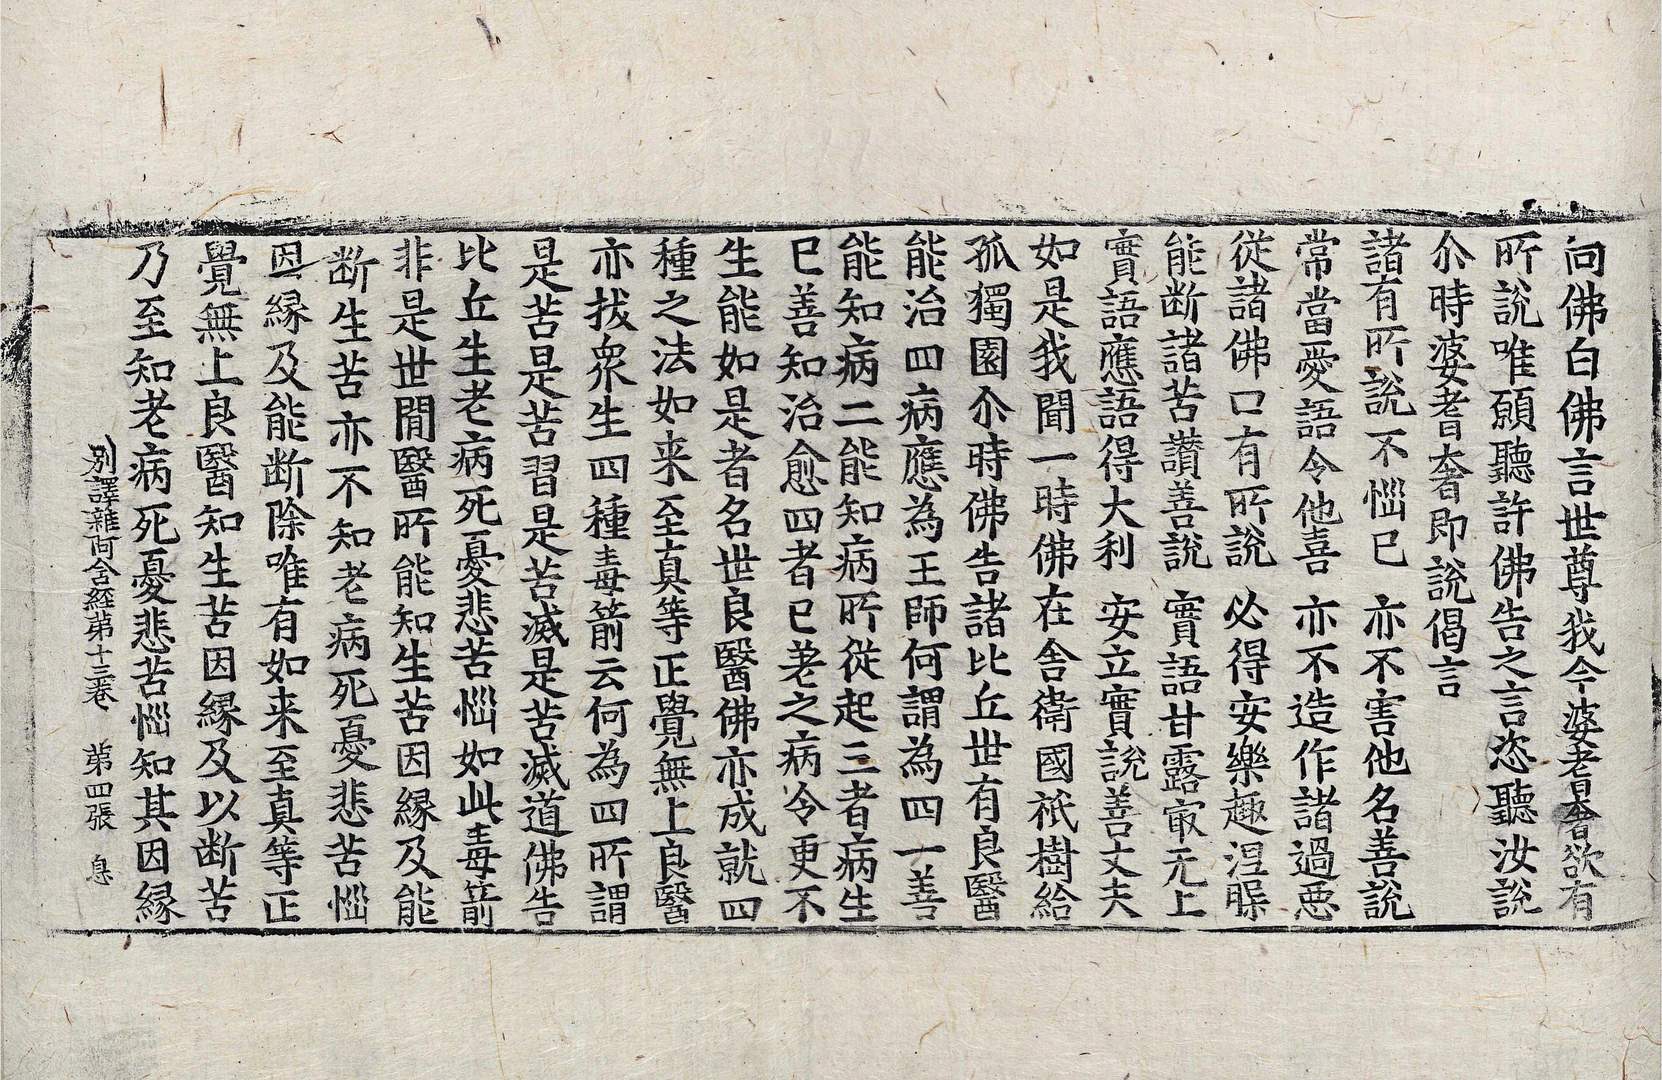 向佛白佛言世尊我今婆耆奢欲有
所說唯願聽許佛告之言恣聽汝說
尒時婆耆奢即說偈言
諸有所說不惱已 亦不害他名善說
常當愛語令他喜 亦不造作諸過惡
從諸佛口有所說 必得安樂趣涅槃
能断諸苦讃善說 實語甘露㝡无上
實語應語得大利 安立實說善丈夫
如是我聞一時佛在舍衛國祇樹給
孤獨園尒時佛告諸比丘世有良醫
能治四病應為王師何謂為四一善
能知病二能知病所從起三者病生
已善知治愈四者已差之病令更不
生能如是者名世良醫佛亦成就四
種之法如来至真等正覺無上良醫
亦拔衆生四種毒箭云何為四所謂
是苦是苦習是苦滅是苦滅道佛告
比丘生老病死憂悲苦惱如此毒箭
非是世間醫所能知生苦因緣及能
断生苦亦不知老病死憂悲苦惱
因緣及能断除唯有如来至真等正
覺無上良醫知生苦因緣及以断苦
乃至知老病死憂悲苦惱知其因緣
別譯雜阿含經第十三卷 第四張 息